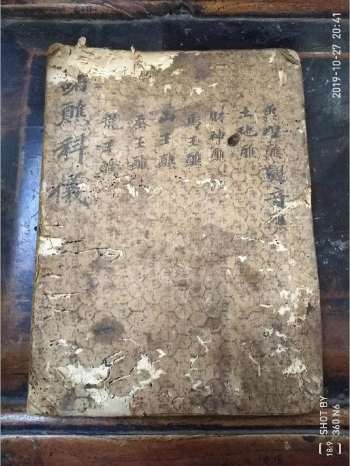 聖醮觀音
土地醮
財神醮
馬王醮
山王醮
王醮
龍王醮
醮科儀
2019-10-27 20:41
SHOT BY
360 N6
18:9